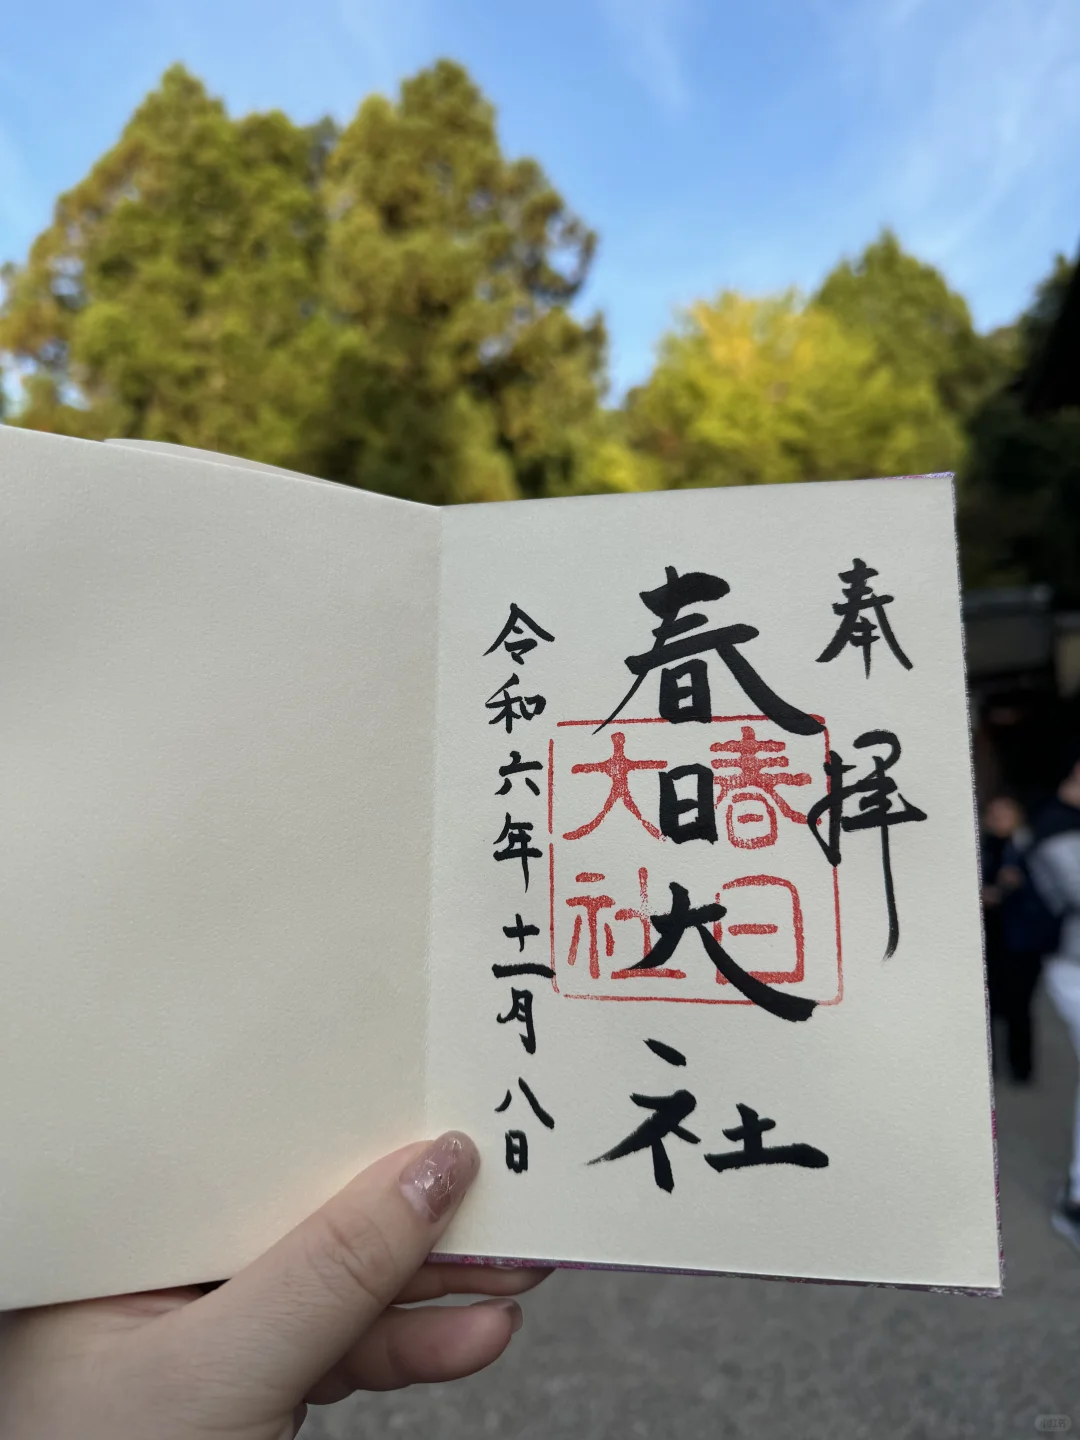 奉拝
春日大社
春日
大社
令和六年十一月八日
小红书